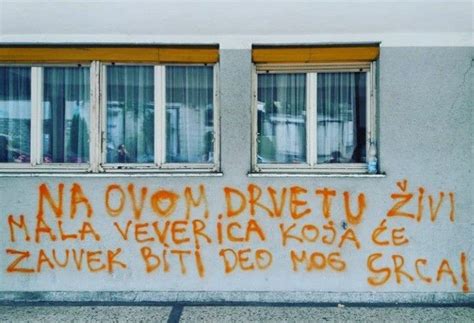 NA OVOM DRVETU ŽIVI
MALA VEVERICA KOJA ĆE
ZAUVEK BITI DEO MOG SRCA!